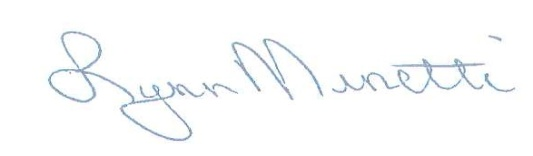 Lynn Minetti